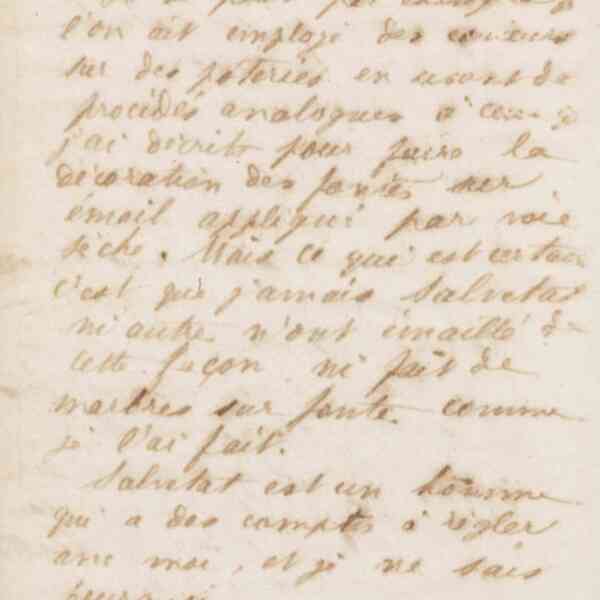 l'on ait employé des couleurs
sur des poteries en usant de
procédés analogues à ceux q
j'ai décrits pour faire la
décoration des fontes sur
émail appliqué par voie
sèche. Mais ce qui est certain
c'est que jamais Salvetat
ni autre n'ont émaillé de
cette façon ni fait de
marbres sur fonte comme
je l'ai fait.
Salvetat est un homme
qui a des comptes à régler
avec moi, et je ne sais
pourquoi